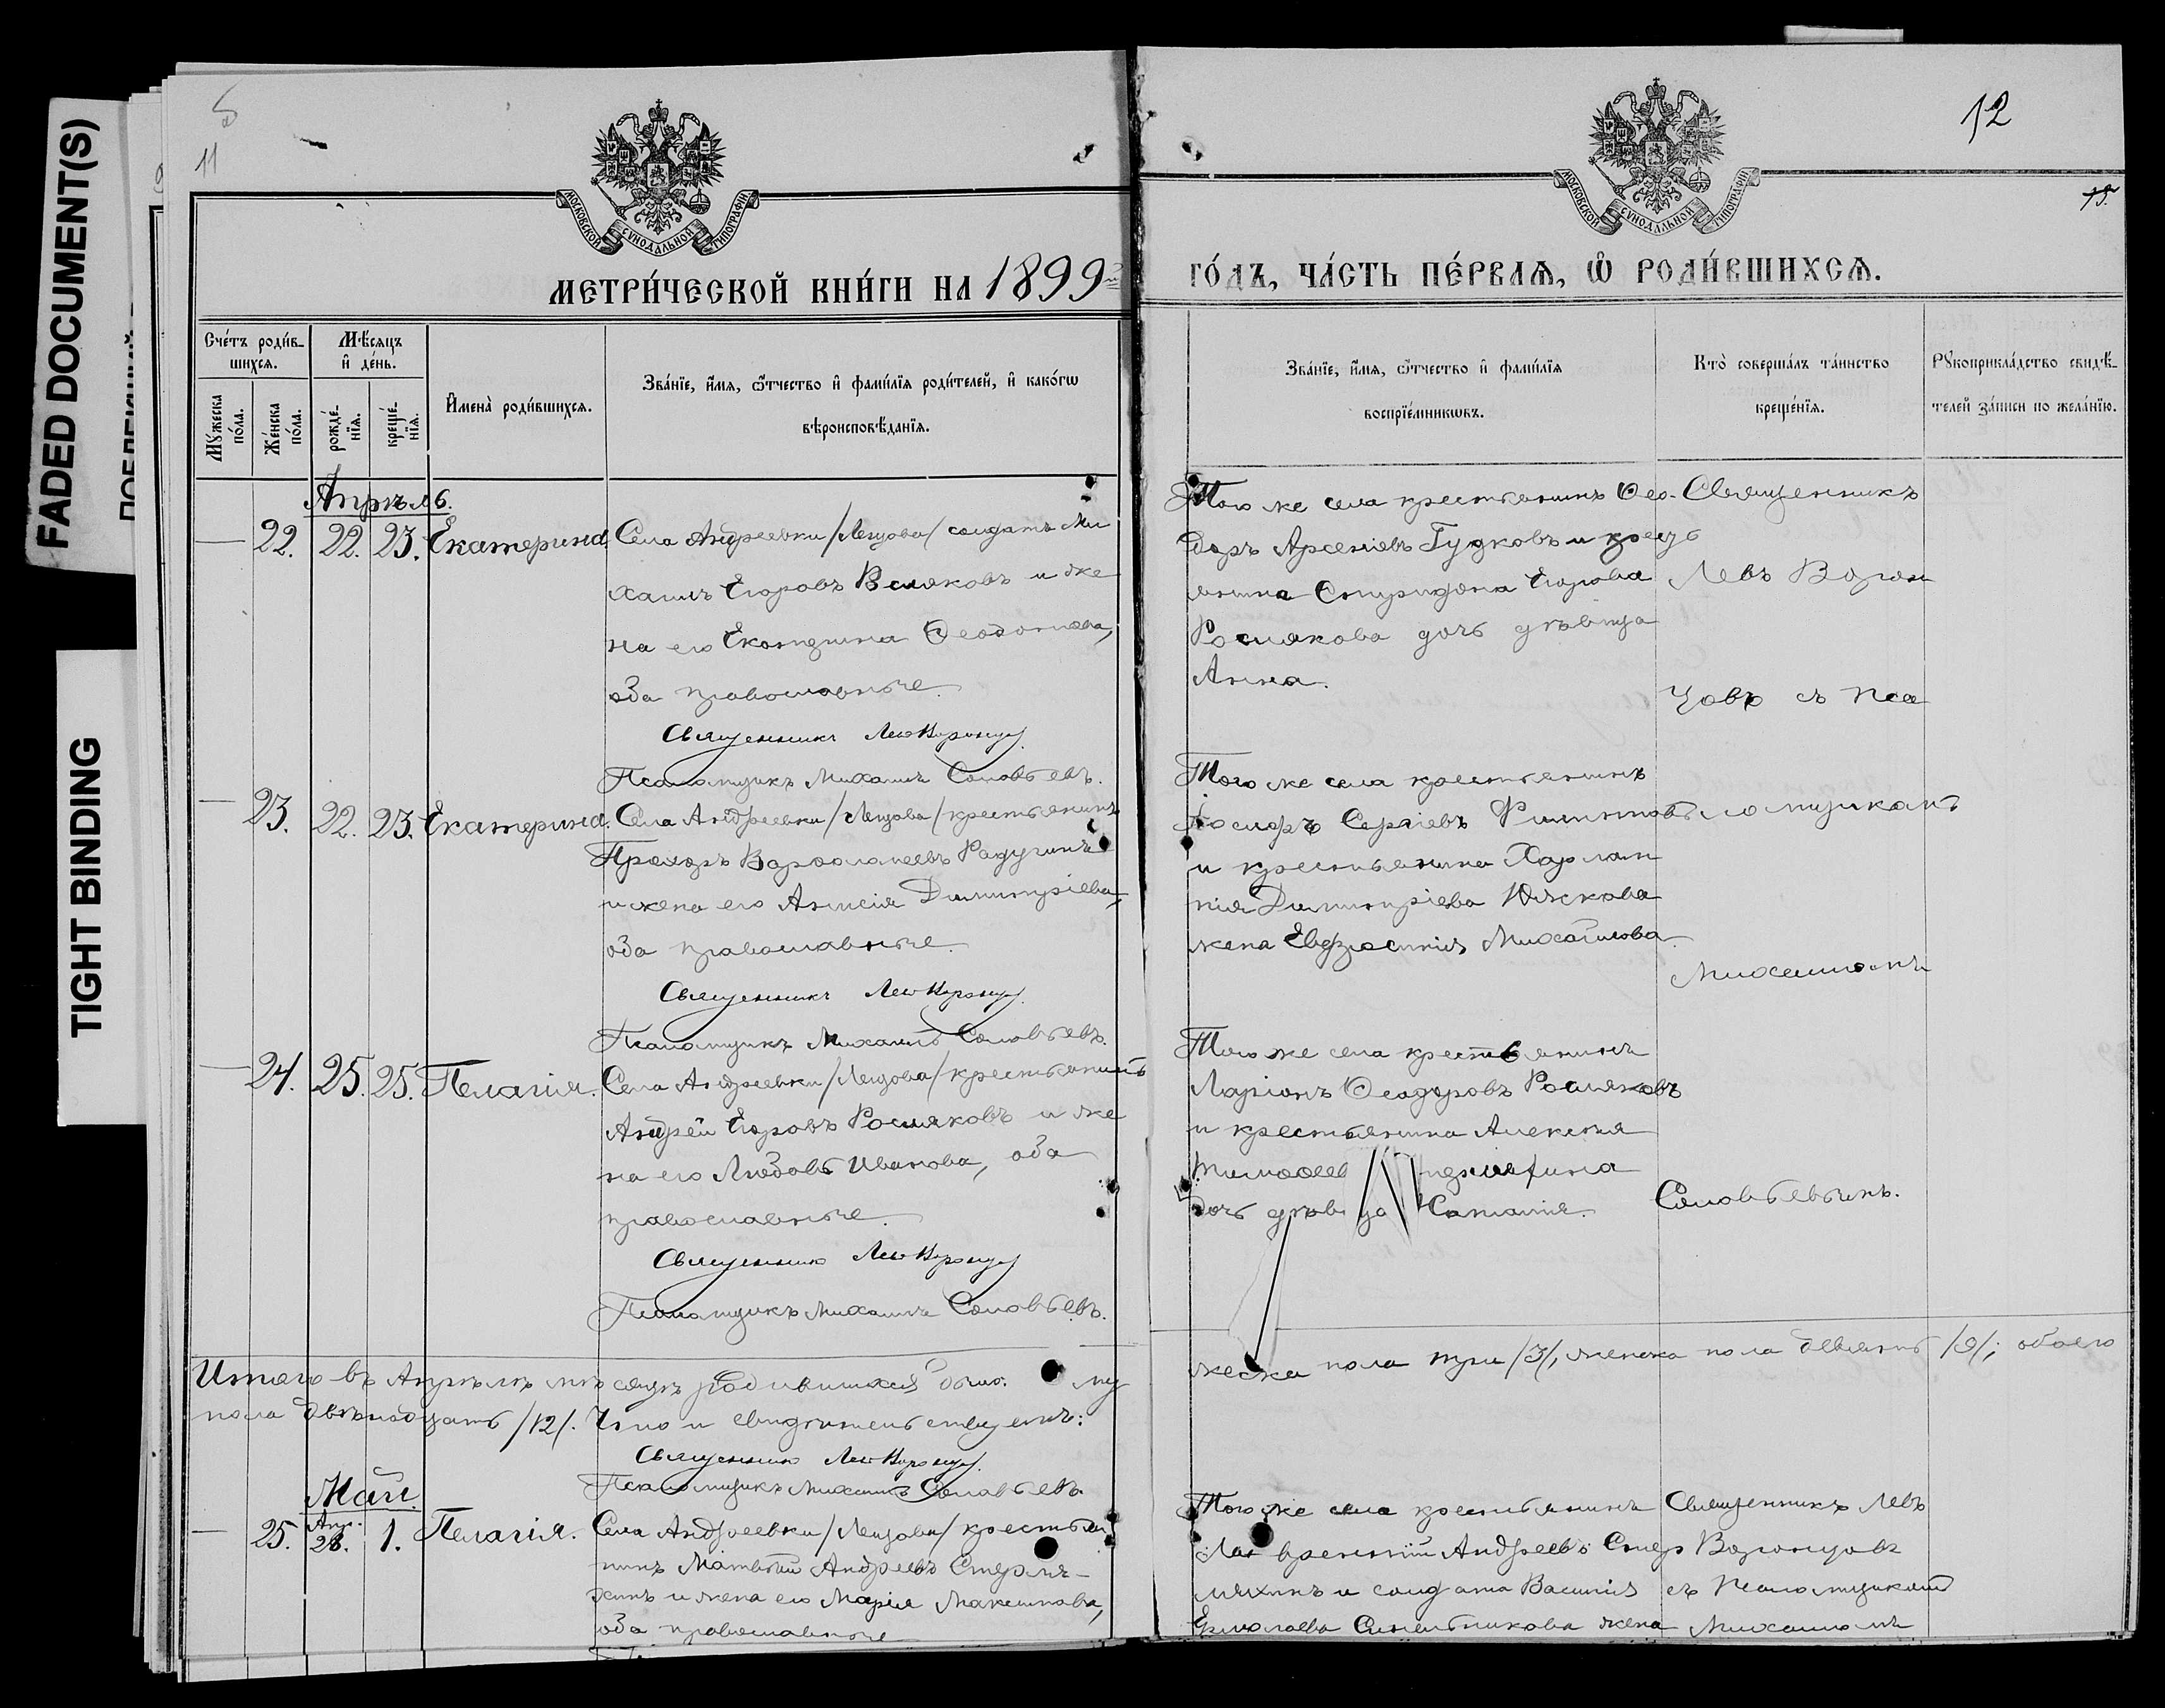 FADED DOCUMENT(S)
TIGHT BINDING
11
12
МОСКОВСКОЙ СѴНОДАЛЬНОЙ ТИПОГРАФІИ
МОСКОВСКОЙ СѴНОДАЛЬНОЙ ТИПОГРАФІИ
МЕТРИ́ЧЕСКОЙ КНИ́ГИ НА 1899
ГО́ДЪ, ЧА́СТЬ ПЕ́РВАѦ, Ѡ҆ РОДИ́ВШИХСѦ.
Сче́тъ роди́в-
шихсѧ.
Мꙋ́жеска по́ла.
Же́нска по́ла.
Мѣ́сѧцъ
и҆ де́нь.
рожде́-
нїѧ.
креще́-
нїѧ.
И҆мена̀ роди́вшихсѧ.
Зва́нїе, и҆́мѧ, ѻ҆́тчество и҆ фами́лїѧ роди́телей, и҆ како́гѡ
вѣроисповѣ́данїѧ.
Зва́нїе, и҆́мѧ, ѻ҆́тчество и҆ фами́лїѧ
воспрїе́мникѡвъ.
Кто̀ соверша́лъ та́инство
креще́нїѧ.
Рꙋкоприкла́дство свидѣ́-
телей за́писи по жела́нїю.
Апрѣль.
— 22. 22. 23. Екатерина.
Села Андреевки /Лецова/ солдатъ Ми
хаилъ Егоровъ Росляковъ и же
на его Екатерина Ѳеодотова,
оба православные.
Священникъ Левъ Воронцов
Псаломщикъ Михаилъ Соловьевъ.
Того же села крестьянинъ Ѳео-
доръ Арсеніевъ Гудковъ и крест
янина Спиридона Егорова
Рослякова дочь дѣвица
Анна.
Священникъ
Левъ Ворон
цовъ съ Пса
ломщикомъ
Михаиломъ
Соловьевымъ.
— 23. 22. 23. Екатерина.
Села Андреевки /Лецова/ крестьянинъ
Прохоръ Варѳоломеевъ Радугинъ
и жена его Анисія Димитріева,
оба православные.
Священникъ Левъ Воронцов
Псаломщикъ Михаилъ Соловьевъ.
Того же села крестьянинъ
Іосифъ Сергіевъ Филиповъ
и крестьянина Харлам
пія Димитріева
жена Евфросинія Михайлова.
— 24. 25. 25. Пелагія.
Села Андреевки /Лецова/ крестьянинъ
Андрей Егоровъ Росляковъ и же
на его Любовь Иванова, оба
православные.
Священникъ Левъ Воронцов
Псаломщикъ Михаилъ Соловьевъ.
Того же села крестьянинъ
Ларіонъ Ѳеодоровъ Росляковъ
и крестьянина Алексія
Тимоѳеев
дочь дѣвица
Итого въ Апрѣлѣ мѣсяцѣ родившихся было: му
жеска пола три /3/, женска пола девять /9/; обоего
пола двѣнадцать /12/. Что и свидѣтельствуемъ:
Священникъ Левъ Воронцов
Псаломщикъ Михаилъ Соловьевъ.
Май.
— 25. Апр. 28. 1. Пелагія.
Села Андреевки /Лецова/ крестья
нинъ Матвѣй Андреевъ Стерля-
хинъ и жена его Марія Максимова,
оба православные
Того же села крестьянинъ
Лаврентій Андреевъ Стер
ляхинъ и солдата Василія
Ермолаева Синельникова жена
Священникъ Левъ
Воронцовъ
съ Псаломщикомъ
Михаиломъ